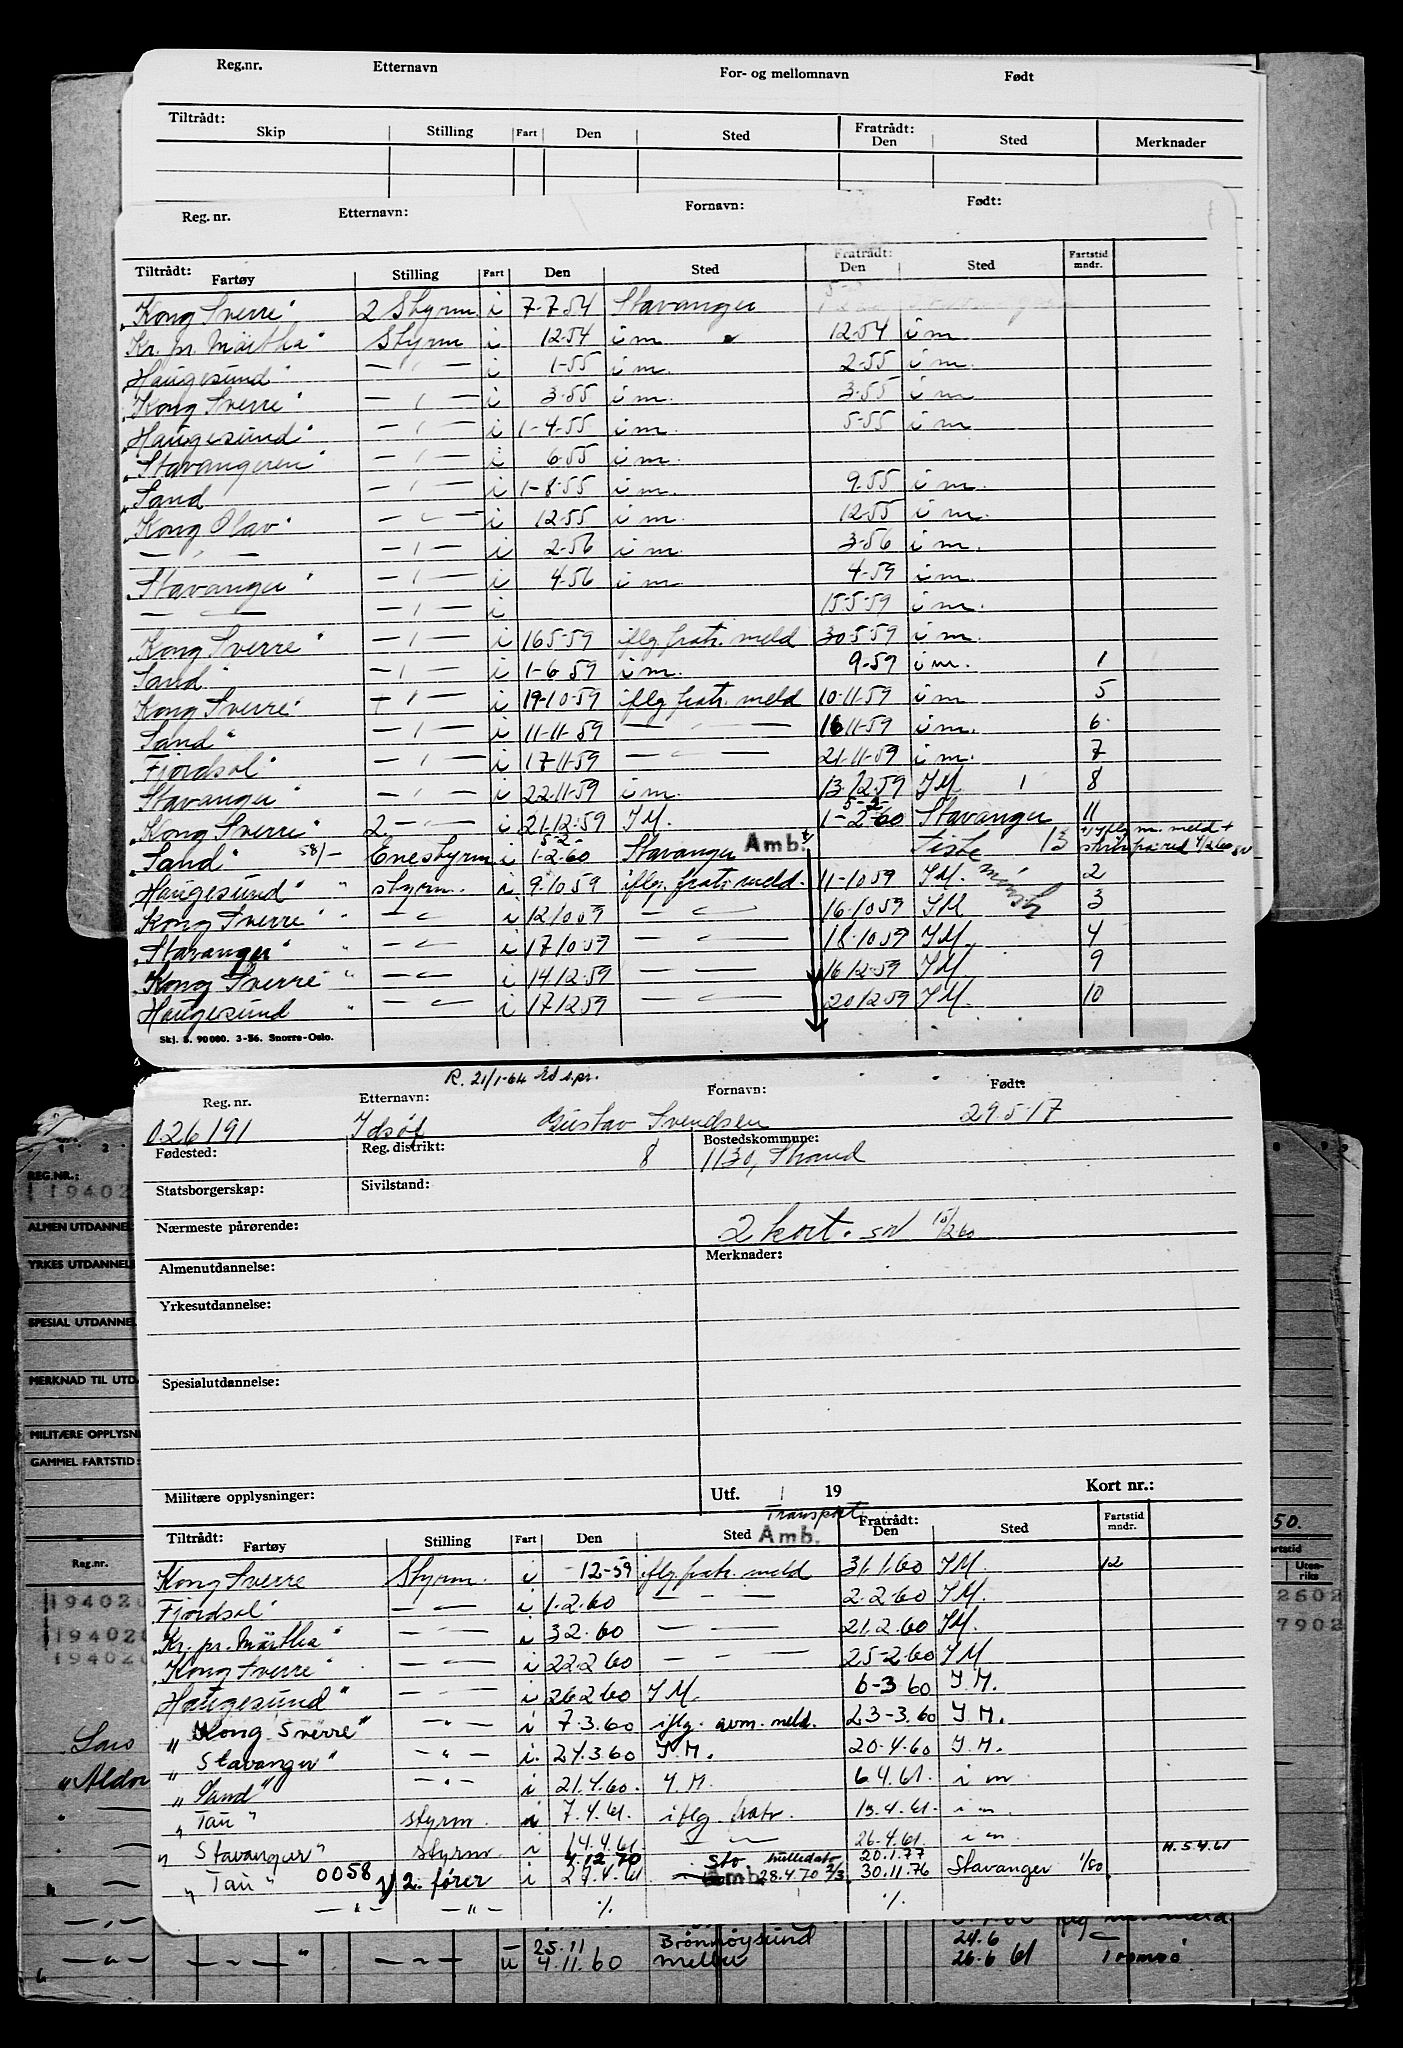 Reg.nr. Etternavn For- og mellomnavn Født
Tiltrådt: Fratrådt:
Skip Stilling Fart Den Sted Den Sted Merknader
Reg. nr. Etternavn: Fornavn: Født:
Tiltrådt: Fratrådt: Fartstid
Fartøy Stilling Fart Den Sted Den Sted mndr.
"Kong Sverre" 2 Styrm i 7-7-54 Stavanger
Kr. pr. Märtha" Styrm i 12-54 i m 12-54 i m
Haugesund" — " — i 1-55 i m. 2-55 i m
"Kong Sverre" — " — i 3-55 i m. 3-55 i m
"Haugesund" — " — i 1-4-55 i m. 5-55 i m
"Stavangeren" — " — i 6-55 i m.
"Sand — " — i 1-8-55 i m. 9.55 i m.
"Kong Olav" — " — i 12-55 i m. 12-55 i m.
— " — — " — i 2-56 i m. 3-56 i m.
"Stavanger" — " — i 4-56 i m 4-59 i m.
— " — — " — i 15-5-59 i m.
"Kong Sverre" — " — i 16 5-59 iflg fratr. meld 30-5-59 i m.
"Sand" — " — i 1-6-59 i m. 9-59 i m. 1
"Kong Sverre" — " — i 19-10-59 iflg fratr. meld 10-11-59 i m 5
"Sand" — " — i 11-11-59 — " — 16 11-59 i m. 6.
Fjordsol" — " — i 17 11-59 — " — 21-11-59 i m. 7
Stavanger" — " — i 22-11-59 i m. 13.12.59 IM 8
"Kong Sverre" 2. — " — i 21.12-59 IM. 1-2-60 Stavanger 11
"Sand" 58/- Enestyrm i 1-2-60 Stavanger Amb. siste 13
Haugesund" " styrm. i 9.10 59 iflg. fratr. meld. 11-10 59 IM. 2
"Kong Sverre" " — " — i 12 10 59 — " — 16-10 59 IM 3
"Stavanger" " — " — i 17 10-59 — " — 18-10 59 IM, 4
"Kong Sverre" " — " — i 14 12-59 — " — 16 12-59 IM 9
Haugesund " — " — i 17 12 59 — " — 20 12 59 IM. 10
Skj. 5. 90000. 3-56. Snorre-Oslo.
R. 21/1-64
Reg. nr. Etternavn: Fornavn: Født:
026191 Idsøe Gustav Svendsen 29.5-17
Fødested: Reg. distrikt: 8 Bostedskommune: 1130, Strand
Statsborgerskap: Sivilstand:
Nærmeste pårørende: 2 kort. sd 15/12 60
Almenutdannelse: Merknader:
Yrkesutdannelse:
Spesialutdannelse:
Militære opplysninger: Utf. / 19 Kort nr.:
Transport
Tiltrådt: Amb. Fratrådt: Fartstid
Fartøy Stilling Fart Den Sted Den Sted mndr.
Kong Sverre Styrm. i -12-59 iflg fratr. meld 31.1.60 IM. 12
Fjordsol" — " — i 1-2-60 — " — 2-2-60 IM.
"Kr. pr. Märtha" — " — i 3 2-60 — " — 21.2.60 IM.
"Kong Sverre" — " — i 22-2 60 — " — 25-2-60 IM
Haugesund" — " — i 26 2 60 IM. 6-3 60 I.M.
" Kong Sverre" — " — i 7.3.60 iflg. avm. meld. 23-3.60 I.M.
" Stavanger" — " — i. 24.3.60 I.M. 20.4.60 I.M.
" Sand" — " — i 21.4.60. I.M. 6.4.61. i m.
" Tau " styrm. i 7.4.61. iflg. fratr. 13.4.61. i m.
" Stavanger" styrm i 14.4.61 — " — 26.4.61. i m.
4.12.70 Sto hulledato 20.1.77 M.5.4.61
" Tau " 0058 2. fører i 27.4.61 Amb. 28.4.70 30.11.76 Stavanger 1/80
— " — — " — % %
REG.NR.:
119402
ALMEN UTDANNEL
YRKES UTDANNEL
SPESIAL UTDANNEL
MERKNAD TIL UTD
MILITÆRE OPPLYSN
GAMMEL FARTSTID:
Reg.nr.
119402
119402
119402
50.
Uten-
riks
2502
7902
25.11 Brønnøysund 24.6
— " — — " — u 4.11.60 26.6 61 Tromsø